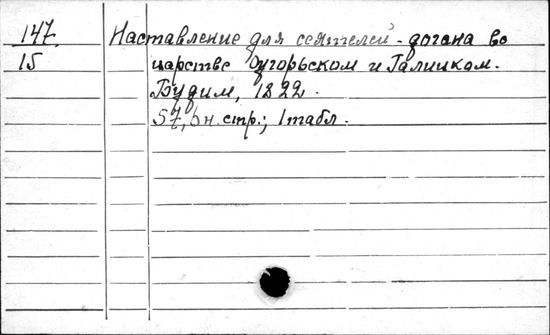 147. Наставление для сеятелей-догана во
15 царстве Оугорьском и Галицком.
Будим, 1822.
57, 5н. стр.; 1табл.